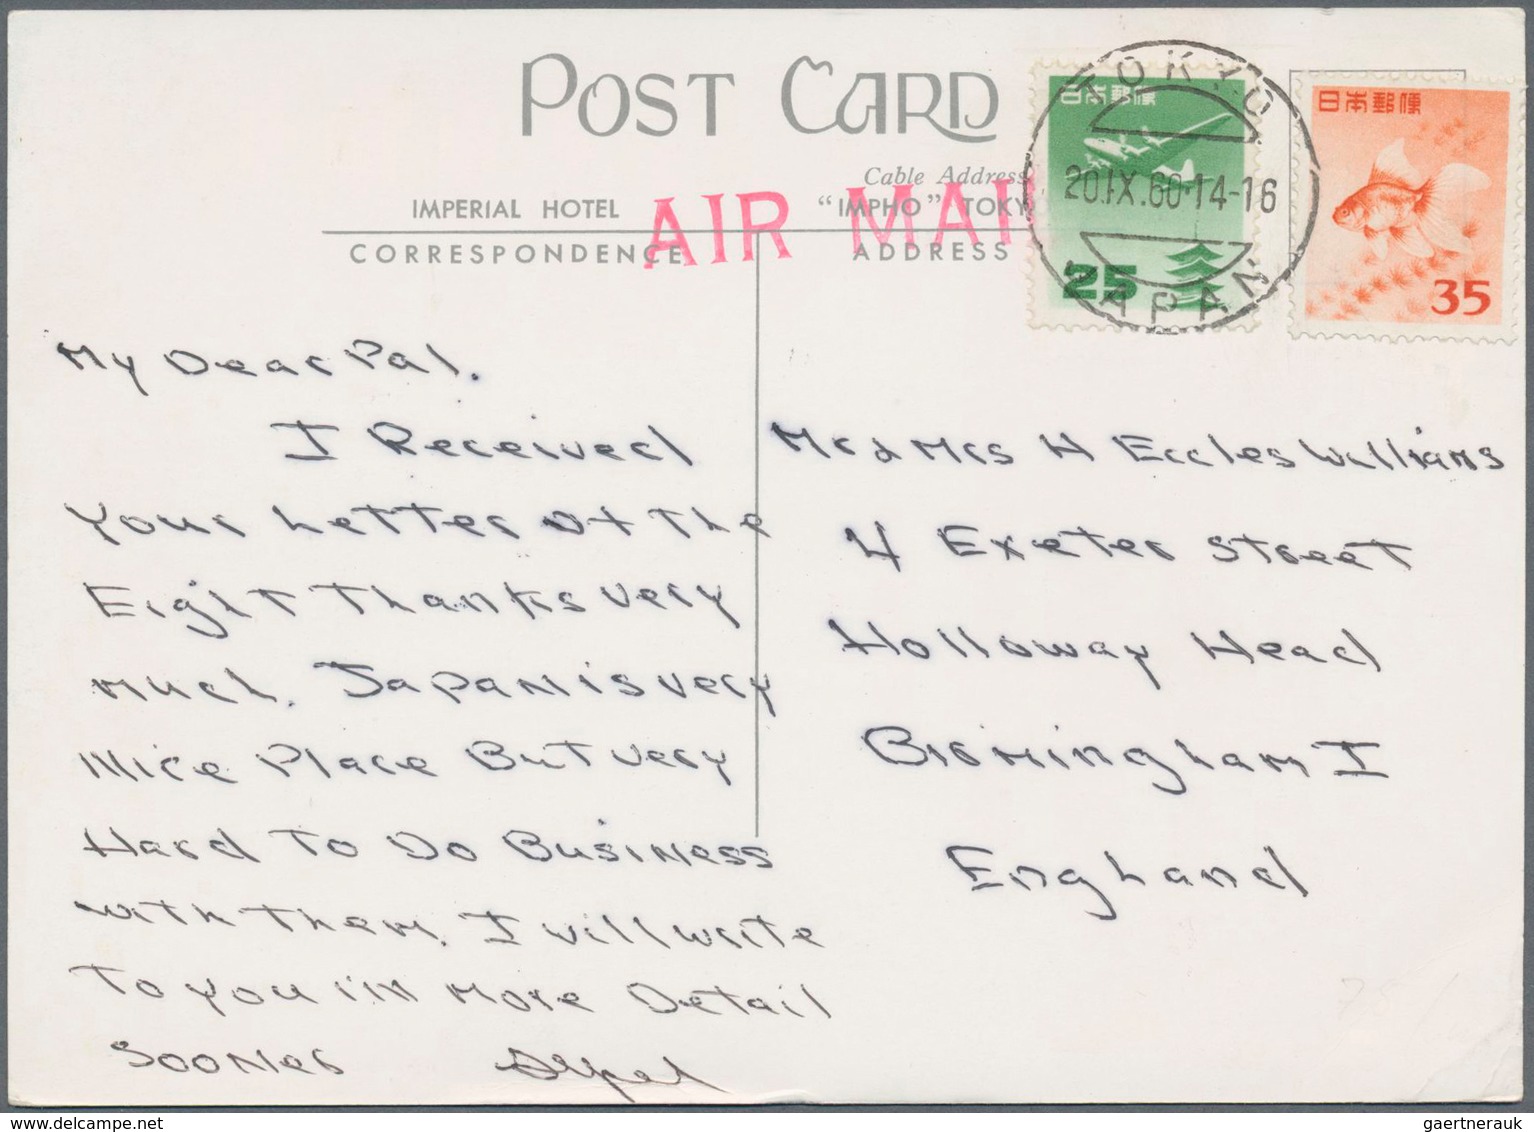 POST CARD
Cable Address
IMPERIAL HOTEL "IMPHO" TOKY
AIR MAI
CORRESPONDENCE
ADDRESS
日本郵便
25
TOKYO
20.IX.60-14-16
JAPAN
日本郵便
35
My Dear Pal.
I Received
Your Letter of the
Eight Thanks very
much. Japan is very
Nice Place But very
Hard To Do Business
with Them. I will write
To you in More Detail
Sooner
Mr & Mrs H Eccles Williams
4 Exeter Street
Holloway Head
Birmingham I
England
gaertnerauk